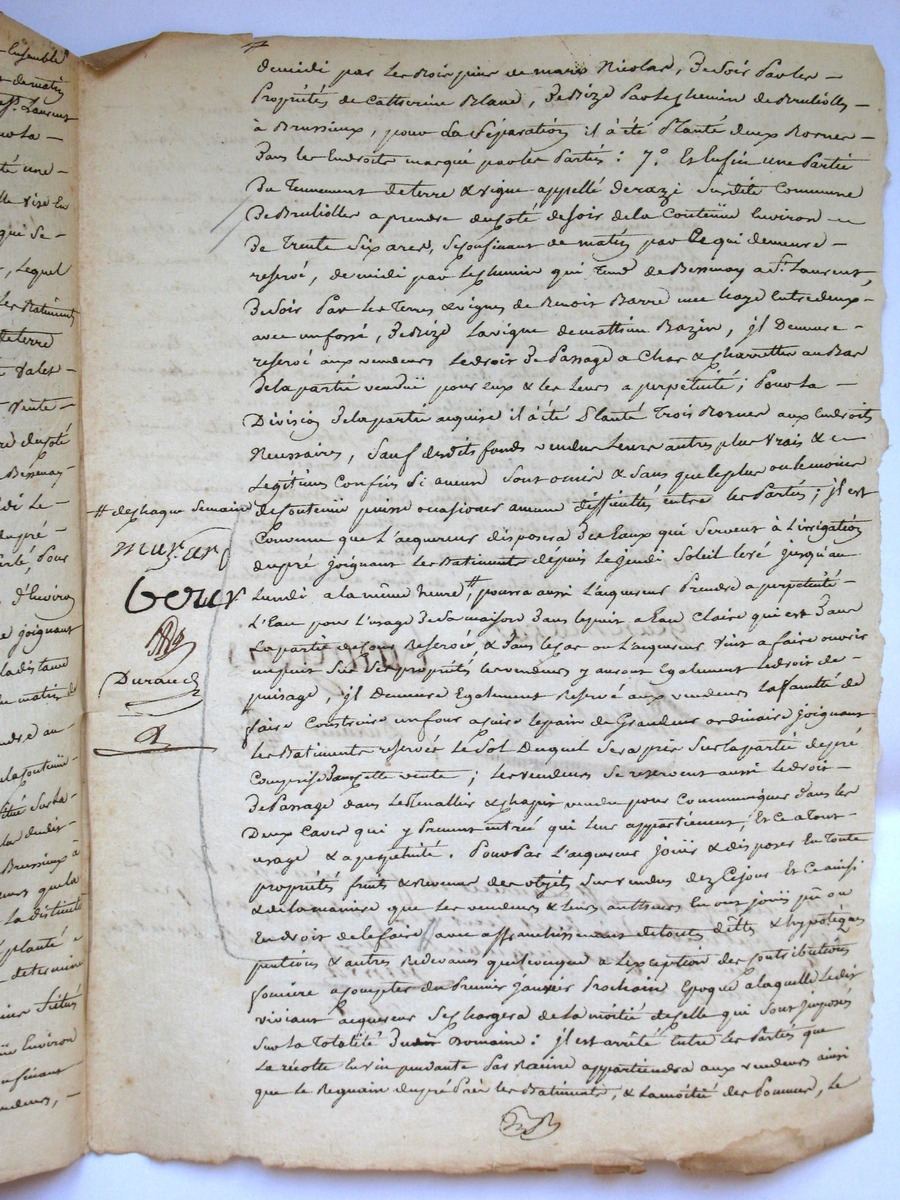 Ensemble
de matin
St. Laurent
une
Vise En
qui Se-
, Lequel
Les Batiments
de terre
Valet-
Vente-
du Coté
Bessenay-
di Le-
du pré-
Pour
d'Environ
joignant
la distance
matin de
Brussieux à
La distance
planté
determiné
Environ
demidi par Les Bois pins de marie Nicolas, De Soir Par les -
Propriétés de Catherine Blanc, De Bize Par Le Chemin de Brulioles -
à Brussieux, pour La Séparation il à été Planté deux Bornes -
Dans les Endroits marqué par les Parties : 7.° Et Enfin une Partie
Du Tennement de terre & vigne appellé derazi Sur dite Commune
De Brulioles a prendre du Coté de Soir de la Contenüe Environ -
De Trente Six ares, Se Confinant de matin par Ce qui demeure -
reservé, de midi par Le Chemin qui Tend de Bessenay a St. Laurent,
De Soir Par les Terres & vignes de Benoit Barre une haye Entre deux -
avec un fossé, De Bize La vigne de mathieu Bazin, jl Demeure -
reservé aux vendeurs Le droit De Passage a Char & Charrettes au Bas
De la partie vendüe pour Eux & les Leurs a perpétuité ; Pour La -
Division De la partie acquise il à été Planté Trois Bornes aux Endroits
Necessaires, Sauf desdits fonds vendus Leurs autres plus vrais &
Légitimes Confins Si aucuns Sont omis & Sans que le plus ou le moins
# de Chaque Semaine
de Contenüe puisse occasioner aucune difficultés entre les Parties ; jl est
Convenu que L'acquereur disposera des Eaux qui Servent à L'irrigation
du pré joignant les Batiments depuis Le jeudi Soleil Levé jusqu'au
Lundi a la même heure,# pourra aussi L'acquereur Prendre a perpetuité -
L'Eau pour L'usage De Sa maison Dans le puit a Eau Claire qui est Dans
La partie de Cour Reservée, & Dans le Cas ou L'acquereur vint a faire ouvrir
un puit Sur Ses propriétés les vendeurs y auront Egalement Le droit de -
puisage, jl Demeure Egalement Reservé aux vendeurs La faculté de
faire Construire un four a Cuire le pain de Grandeur ordinaire joignant
Les Batiments reservés Le Sol Duquel Sera pris Sur La partie de pré
Comprise Dans Cette vente ; Les vendeurs Se reservent aussi Le droit -
De Passage dans Le Tenallier & Chapit vendu pour Communiquer Dans les
Deux Caves qui y Prennent entrée qui Leur appartienent, Et Ce a Tout -
usage & a perpetuité. Pour Par L'acquereur joüir & disposer En Toute
propriétés fruits & revenus des objets Sus vendus dez Ce jour Et Ce ainsi
& de la maniere que Les vendeurs & leurs auteurs En ont joüis pû ou
En droit de le faire avec affranchissement de toutes dettes & hypotèques
pentions & autres Redevances quelconque a L'exception des Contributions
fonciere a Compter du Premier janvier Prochain Epoque a laquelle Ledit
vivians acquereur Se Chargera de la moitié de Celle qui Sont jmposés
Sur La Totalité Dudit Domaine : jl est arrêté Entre les Parties que
La récolte En vin pendante Par Racine appartiendra aux vendeurs ainsi
que le Reguain du pré Près les Batiments, & La moitié des Pommes, Le
Durand